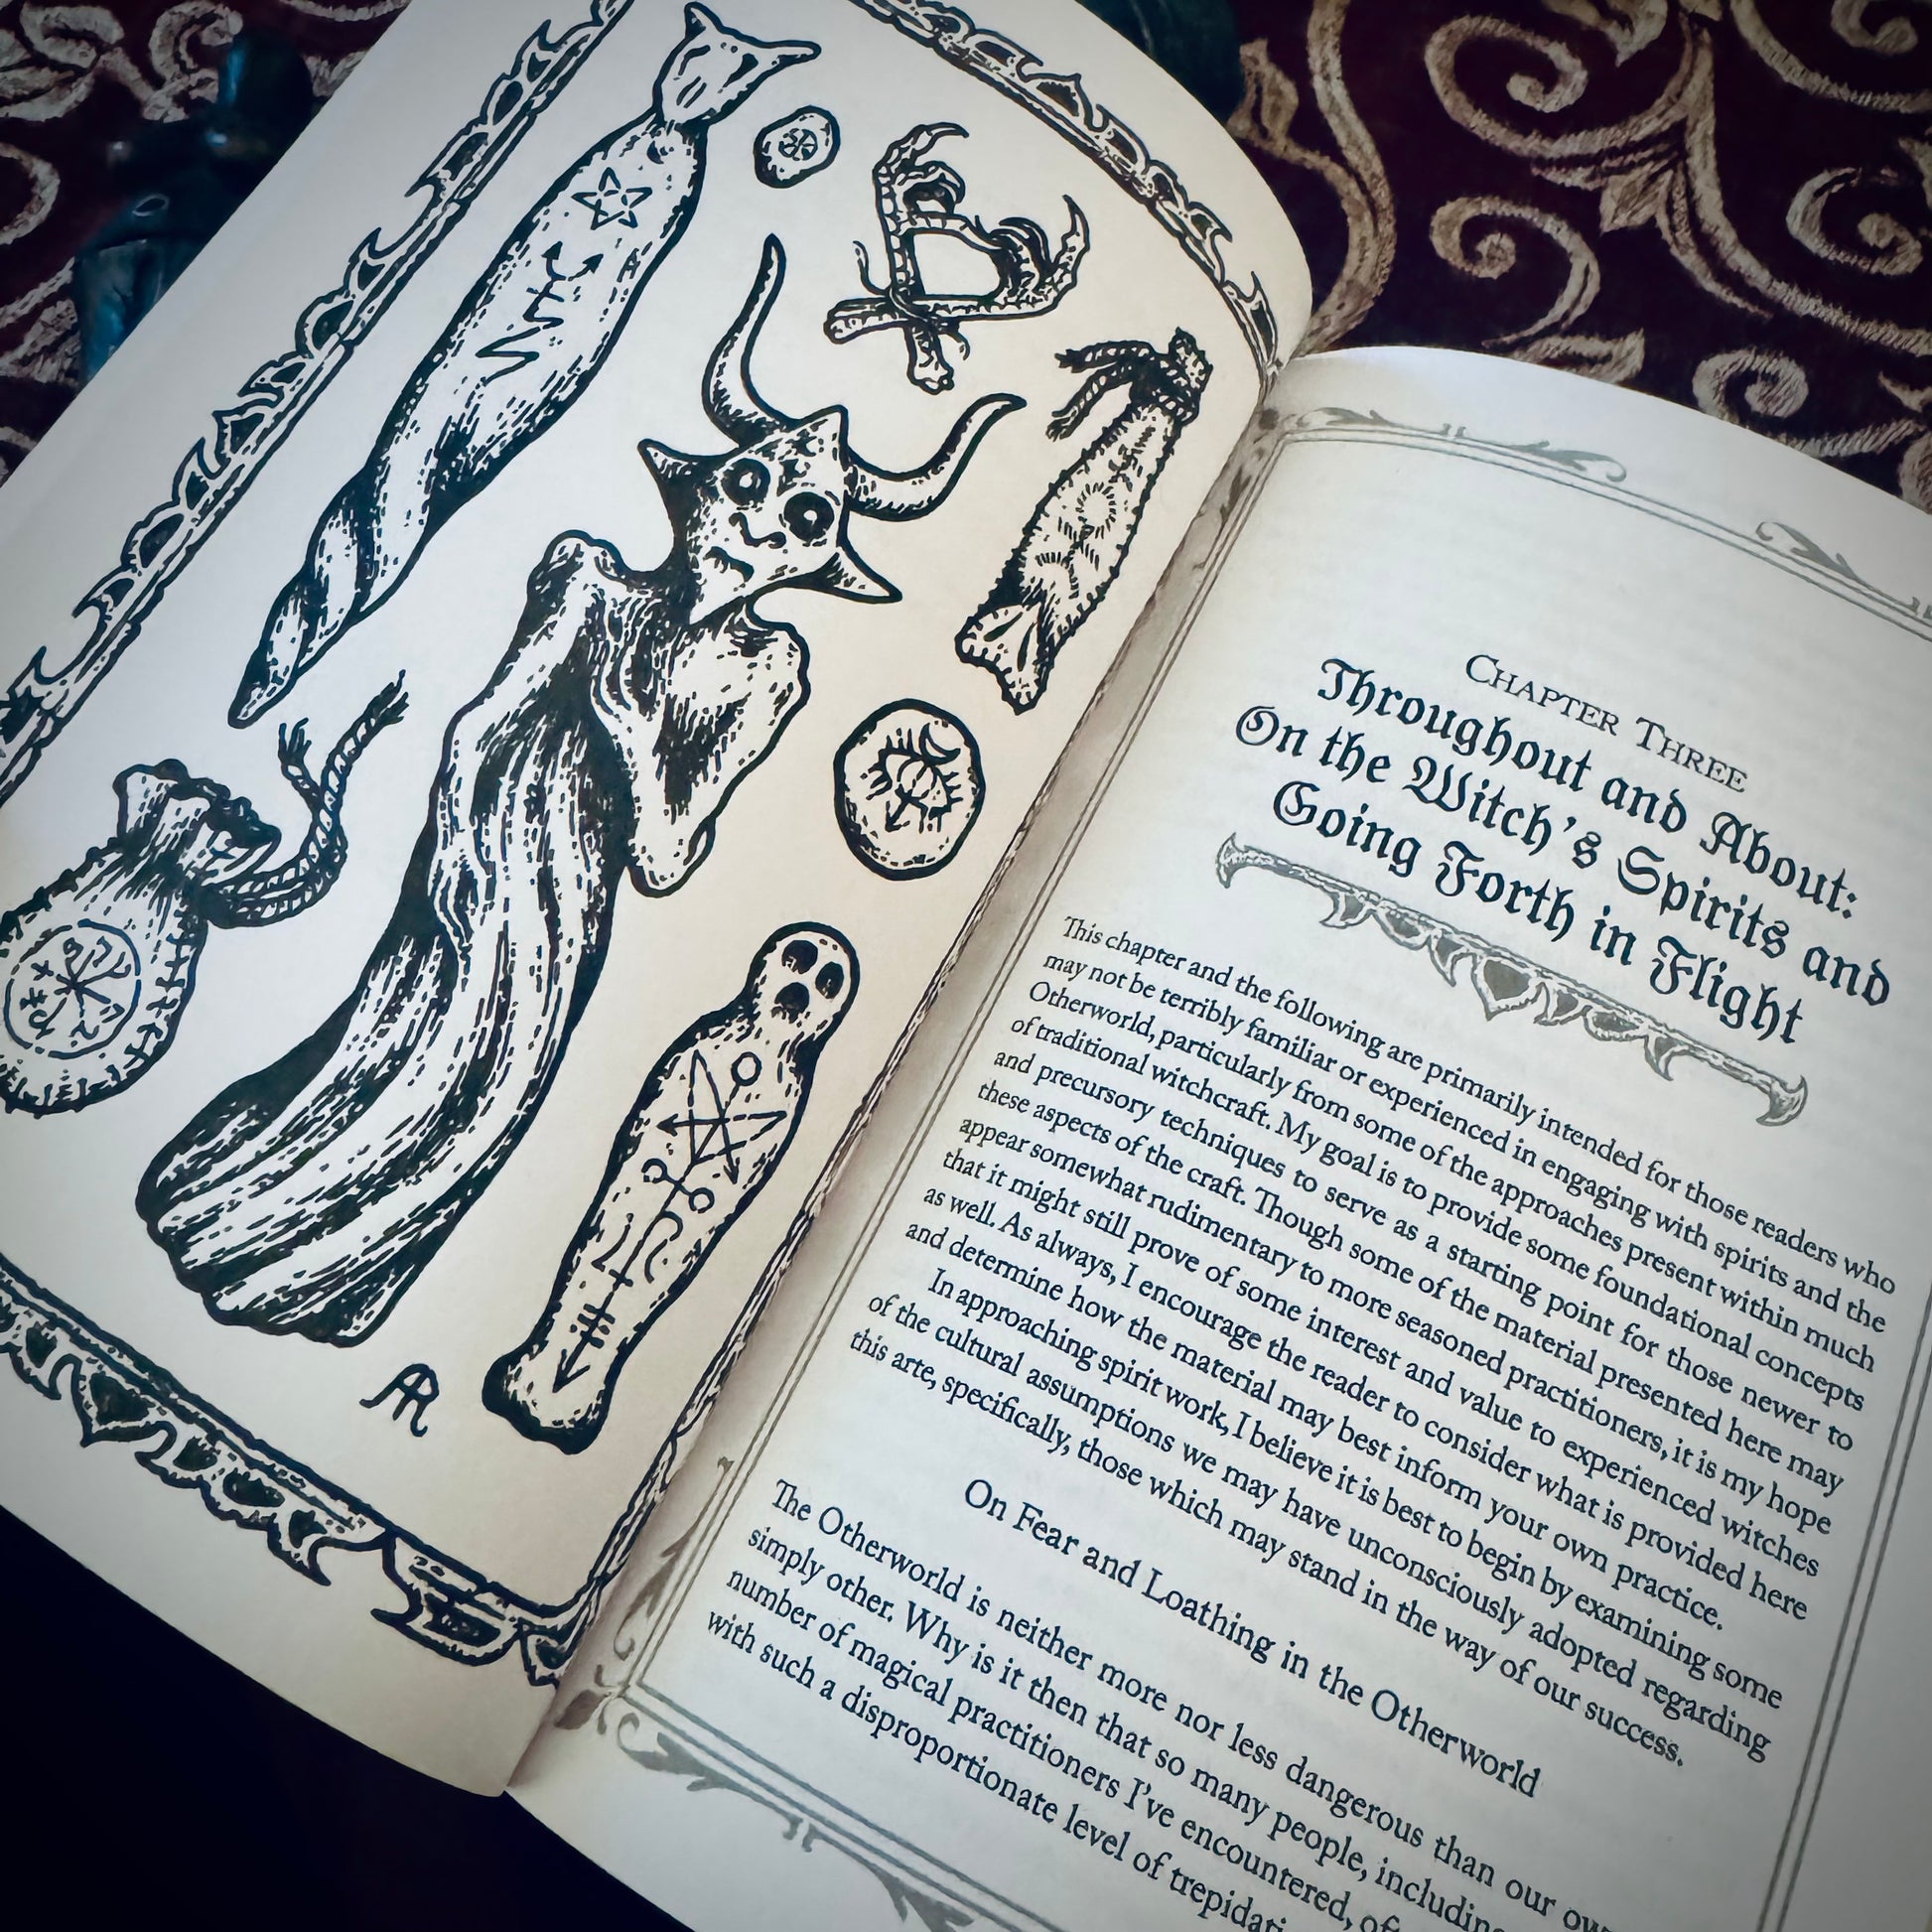 AR
CHAPTER THREE
Throughout and About:
On the Witch's Spirits and
Going Forth in Flight
This chapter and the following are primarily intended for those readers who
may not be terribly familiar or experienced in engaging with spirits and the
Otherworld, particularly from some of the approaches present within much
of traditional witchcraft. My goal is to provide some foundational concepts
and precursory techniques to serve as a starting point for those newer to
these aspects of the craft. Though some of the material presented here may
appear somewhat rudimentary to more seasoned practitioners, it is my hope
that it might still prove of some interest and value to experienced witches
as well. As always, I encourage the reader to consider what is provided here
and determine how the material may best inform your own practice.
In approaching spirit work, I believe it is best to begin by examining some
of the cultural assumptions we may have unconsciously adopted regarding
this arte, specifically, those which may stand in the way of our success.
On Fear and Loathing in the Otherworld
The Otherworld is neither more nor less dangerous than our
simply other. Why is it then that so many people, including
number of magical practitioners I've encountered,
with such a disproportionate level of